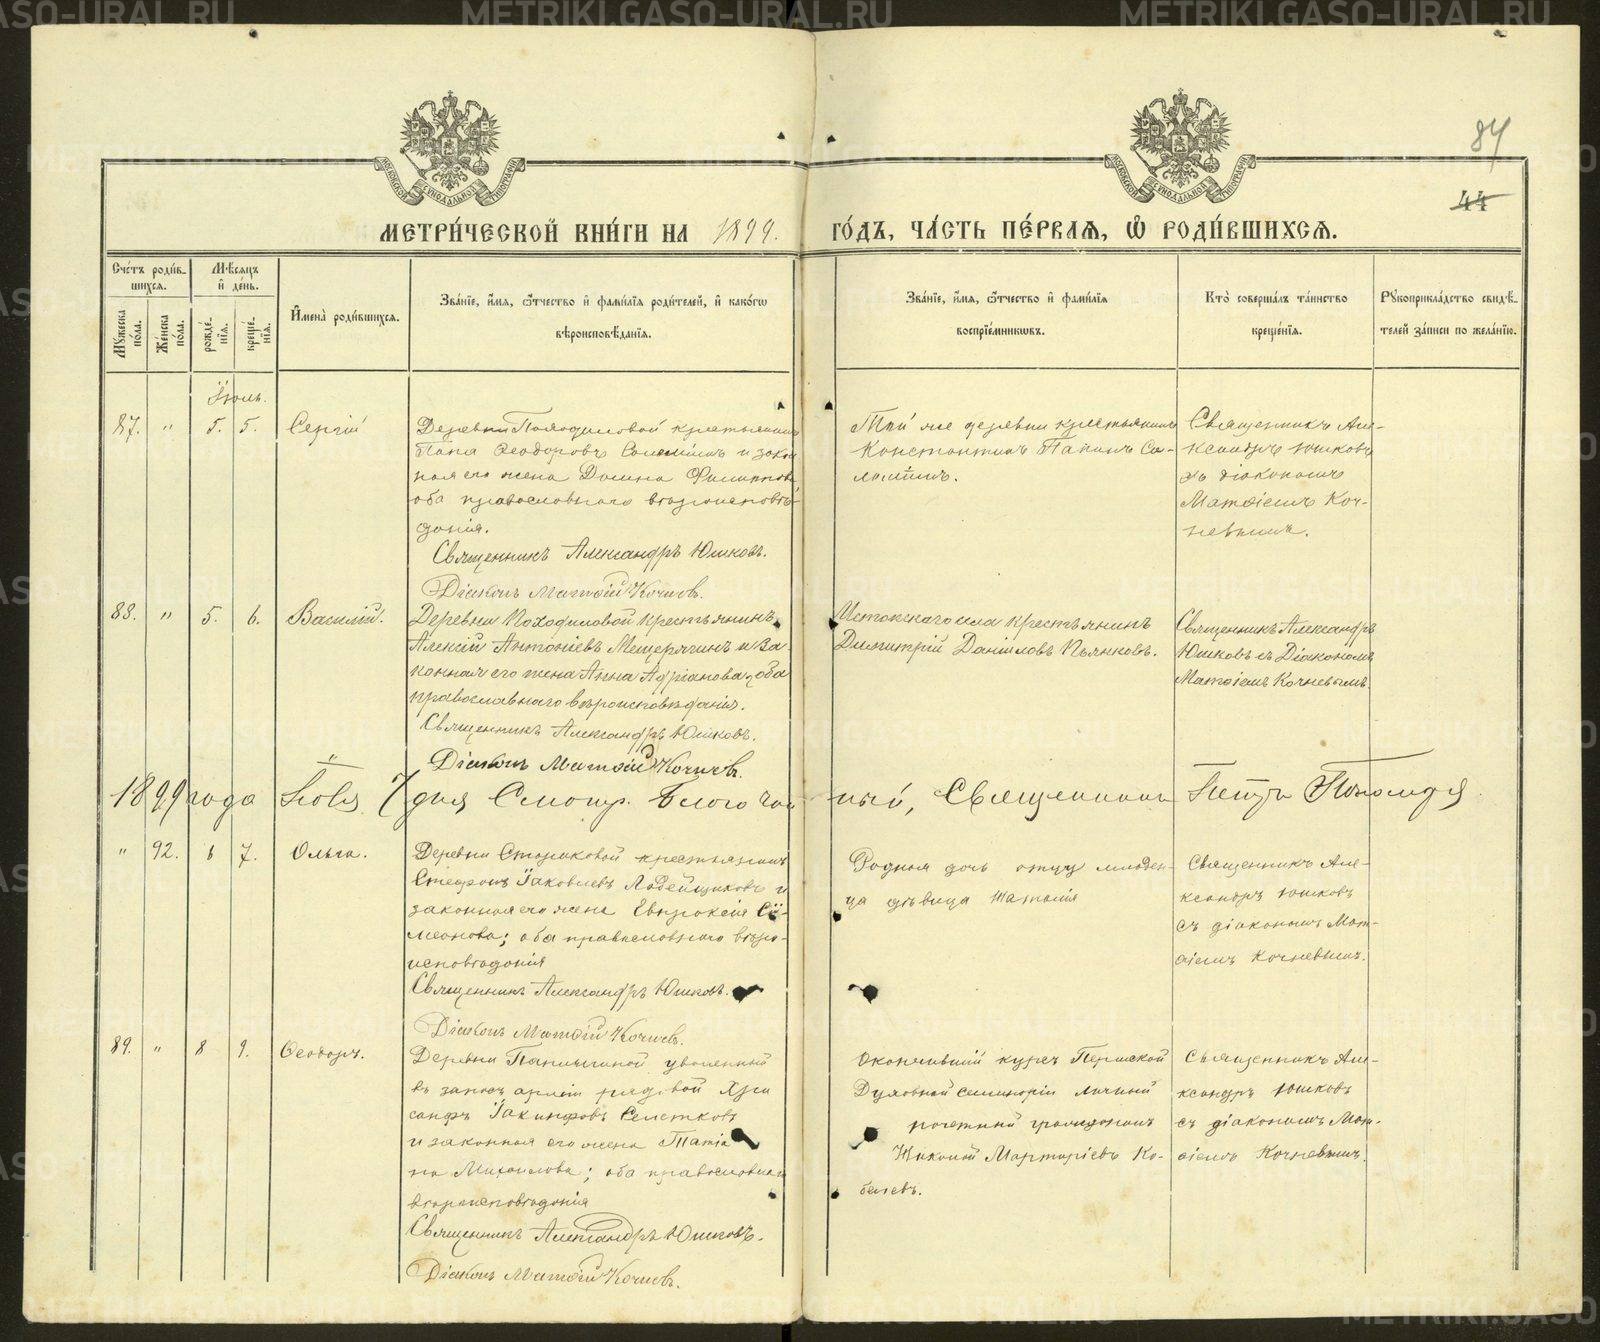 METRIKI.GASO-URAL.RU
84
44
МОСКОВСКОЙ СѴНОДАЛЬНОЙ ТИПОГРАФІИ
МЕТРИ́ЧЕСКОЙ КНИ́ГИ НА 1899. ГО́ДЪ, ЧА́СТЬ ПЕ́РВАѦ, Ѡ РОДИ́ВШИХСѦ.
Сче́тъ роди́вшихсѧ.
Мꙋ́жеска по́ла.
Же́нска по́ла.
Мѣ́сѧцъ и҆ де́нь.
рожде́нїѧ.
креще́нїѧ.
И҆мена̀ роди́вшихсѧ.
Зва́нїе, и҆́мѧ, ѻ҆́тчество и҆ фами́лїѧ роди́телей, и҆ како́гѡ
вѣроисповѣ́данїѧ.
Зва́нїе, и҆́мѧ, ѻ҆́тчество и҆ фами́лїѧ
воспрїе́мникѡвъ.
Кто̀ соверша́лъ та́инство
креще́нїѧ.
Рꙋкоприкла́дство свидѣ́-
телей за́писи по жела́нїю.
Іюль.
87. " 5. 5. Сергій
Деревни Походиловой крестьянинъ
Ѳеодоровъ и закон
ная его жена Филиппова
оба православного вѣроисповѣ-
данія.
Священникъ Александръ Юшковъ.
Діаконъ Матѳій Кочневъ.
Той же деревни крестьянинъ
Константинъ
Священникъ Але-
ксандръ Юшковъ
съ діакономъ
Матѳіемъ Коч-
невымъ.
88. " 5. 6. Василій.
Деревни Походиловой крестьянинъ
Алексій Антоніевъ Мещерягинъ и за
конная его жена Анна Адріанова, оба
православнаго вѣроисповѣданія.
Священникъ Александръ Юшковъ.
Діаконъ Матѳій Кочневъ.
Истокскаго села крестьянинъ
Димитрій Даніиловъ Пьянковъ.
Священникъ Александръ
Юшковъ съ Діакономъ
Матѳіемъ Кочневымъ.
1899 года Іюля 7 дня Смотр. Благочин ный, Священникъ Петръ
" 92. 6 7. Ольга.
Деревни крестьянинъ
Стефанъ Іаковлевъ Лодейщиковъ и
законная его жена Евдоксія Сѵ-
меонова; оба православнаго вѣро-
исповѣданія
Священникъ Александръ Юшковъ.
Діаконъ Матѳій Кочневъ.
Родная дочь отцу младен-
ца дѣвица Татіанія
Священникъ Але-
ксандръ Юшковъ
съ діакономъ Мат-
ѳіемъ Кочневымъ.
89. " 8 9. Ѳеодоръ.
Деревни уволенный
въ запасъ арміи рядовой Хри
санфъ Іакинфовъ Селетковъ
и законная его жена Татіа
на Михаилова; оба православнаго
вѣроисповѣданія
Священникъ Александръ Юшковъ.
Діаконъ Матѳій Кочневъ.
Окончившій курсъ Пермской
Духовной Семинаріи личный
почетный гражданинъ
Николай Мартиріевъ Ко-
белевъ.
Священникъ Але-
ксандръ Юшковъ
съ діакономъ Мат-
ѳіемъ Кочневымъ.